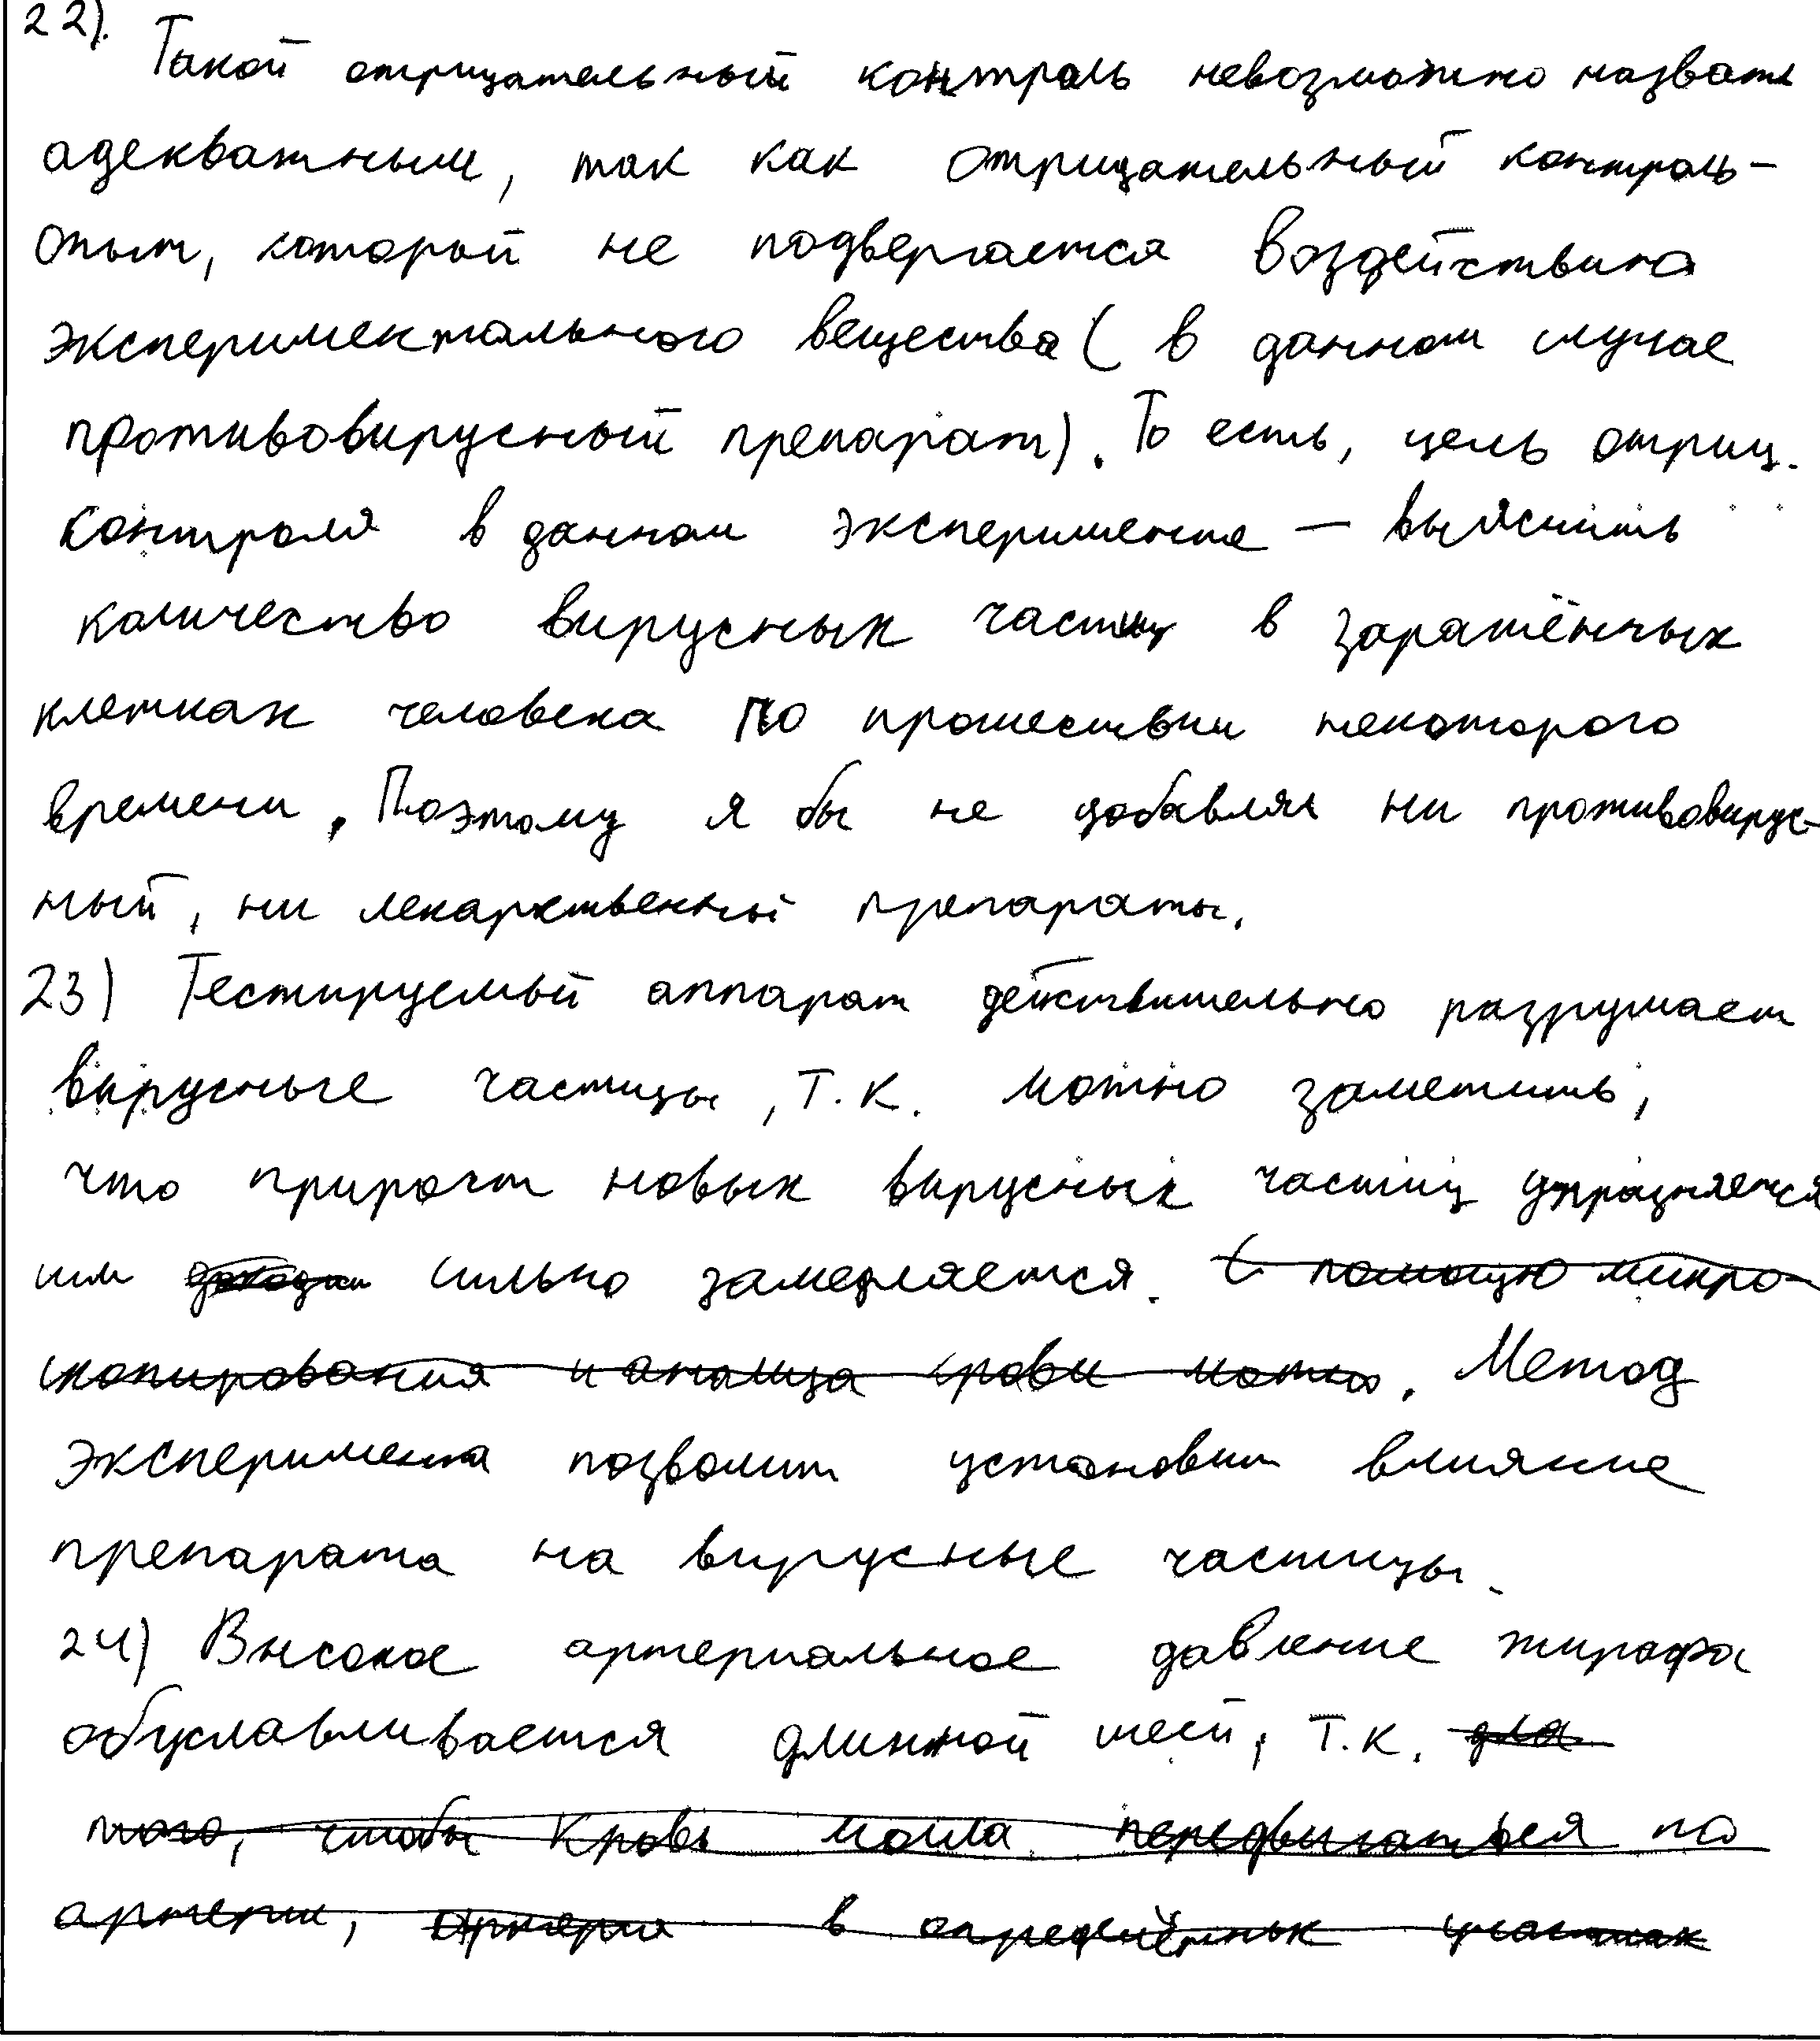 22).
Такой отрицательный контроль невозможно назвать
адекватным, так как отрицательный контроль-
опыт, который не подвергается воздействию
экспериментального вещества ( в данном случае
противовирусный препарат). То есть, цель отриц.
контроля в данном эксперименте — выяснить
количество вирусных частиц в заражённых
клетках человека по прошествии некоторого
времени. Поэтому я бы не добавлял ни противовирус-
ный, ни лекарственный препараты.
23) Тестируемый аппарат действительно разрушает
вирусные частицы, т.к. можно заметить,
что прирост новых вирусных частиц упраздняется
или сильно замедляется. С помощью микро-
скопирования и анализа крови можно. Метод
эксперимента позволит установит влияние
препарата на вирусные частицы.
24) Высокое артериальное давление жирафа
обуславливается длинной шеей, т.к. для
того, чтобы кровь могла передвигаться по
артерии, артерия в определённых участках